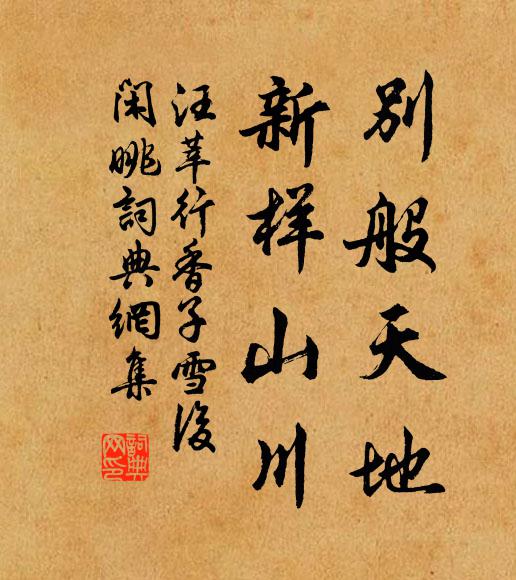 别般天地
新样山川
汪莘行香子雪後
闲眺詞典網集
詞典网印